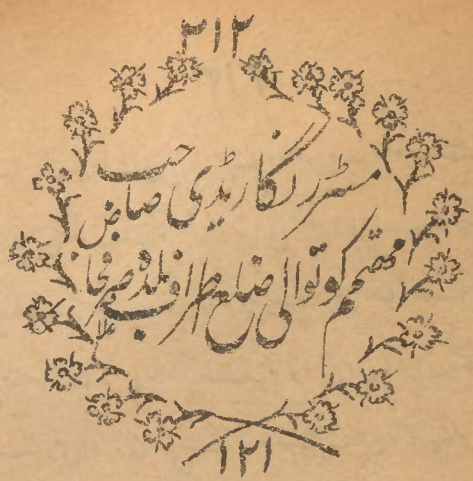 ۳۱۲
مسٹر رنگا ریڈی صاحب
مہتمم کوتوالی ضلع اطراف بلدہ صرفخاص
۱۲۱